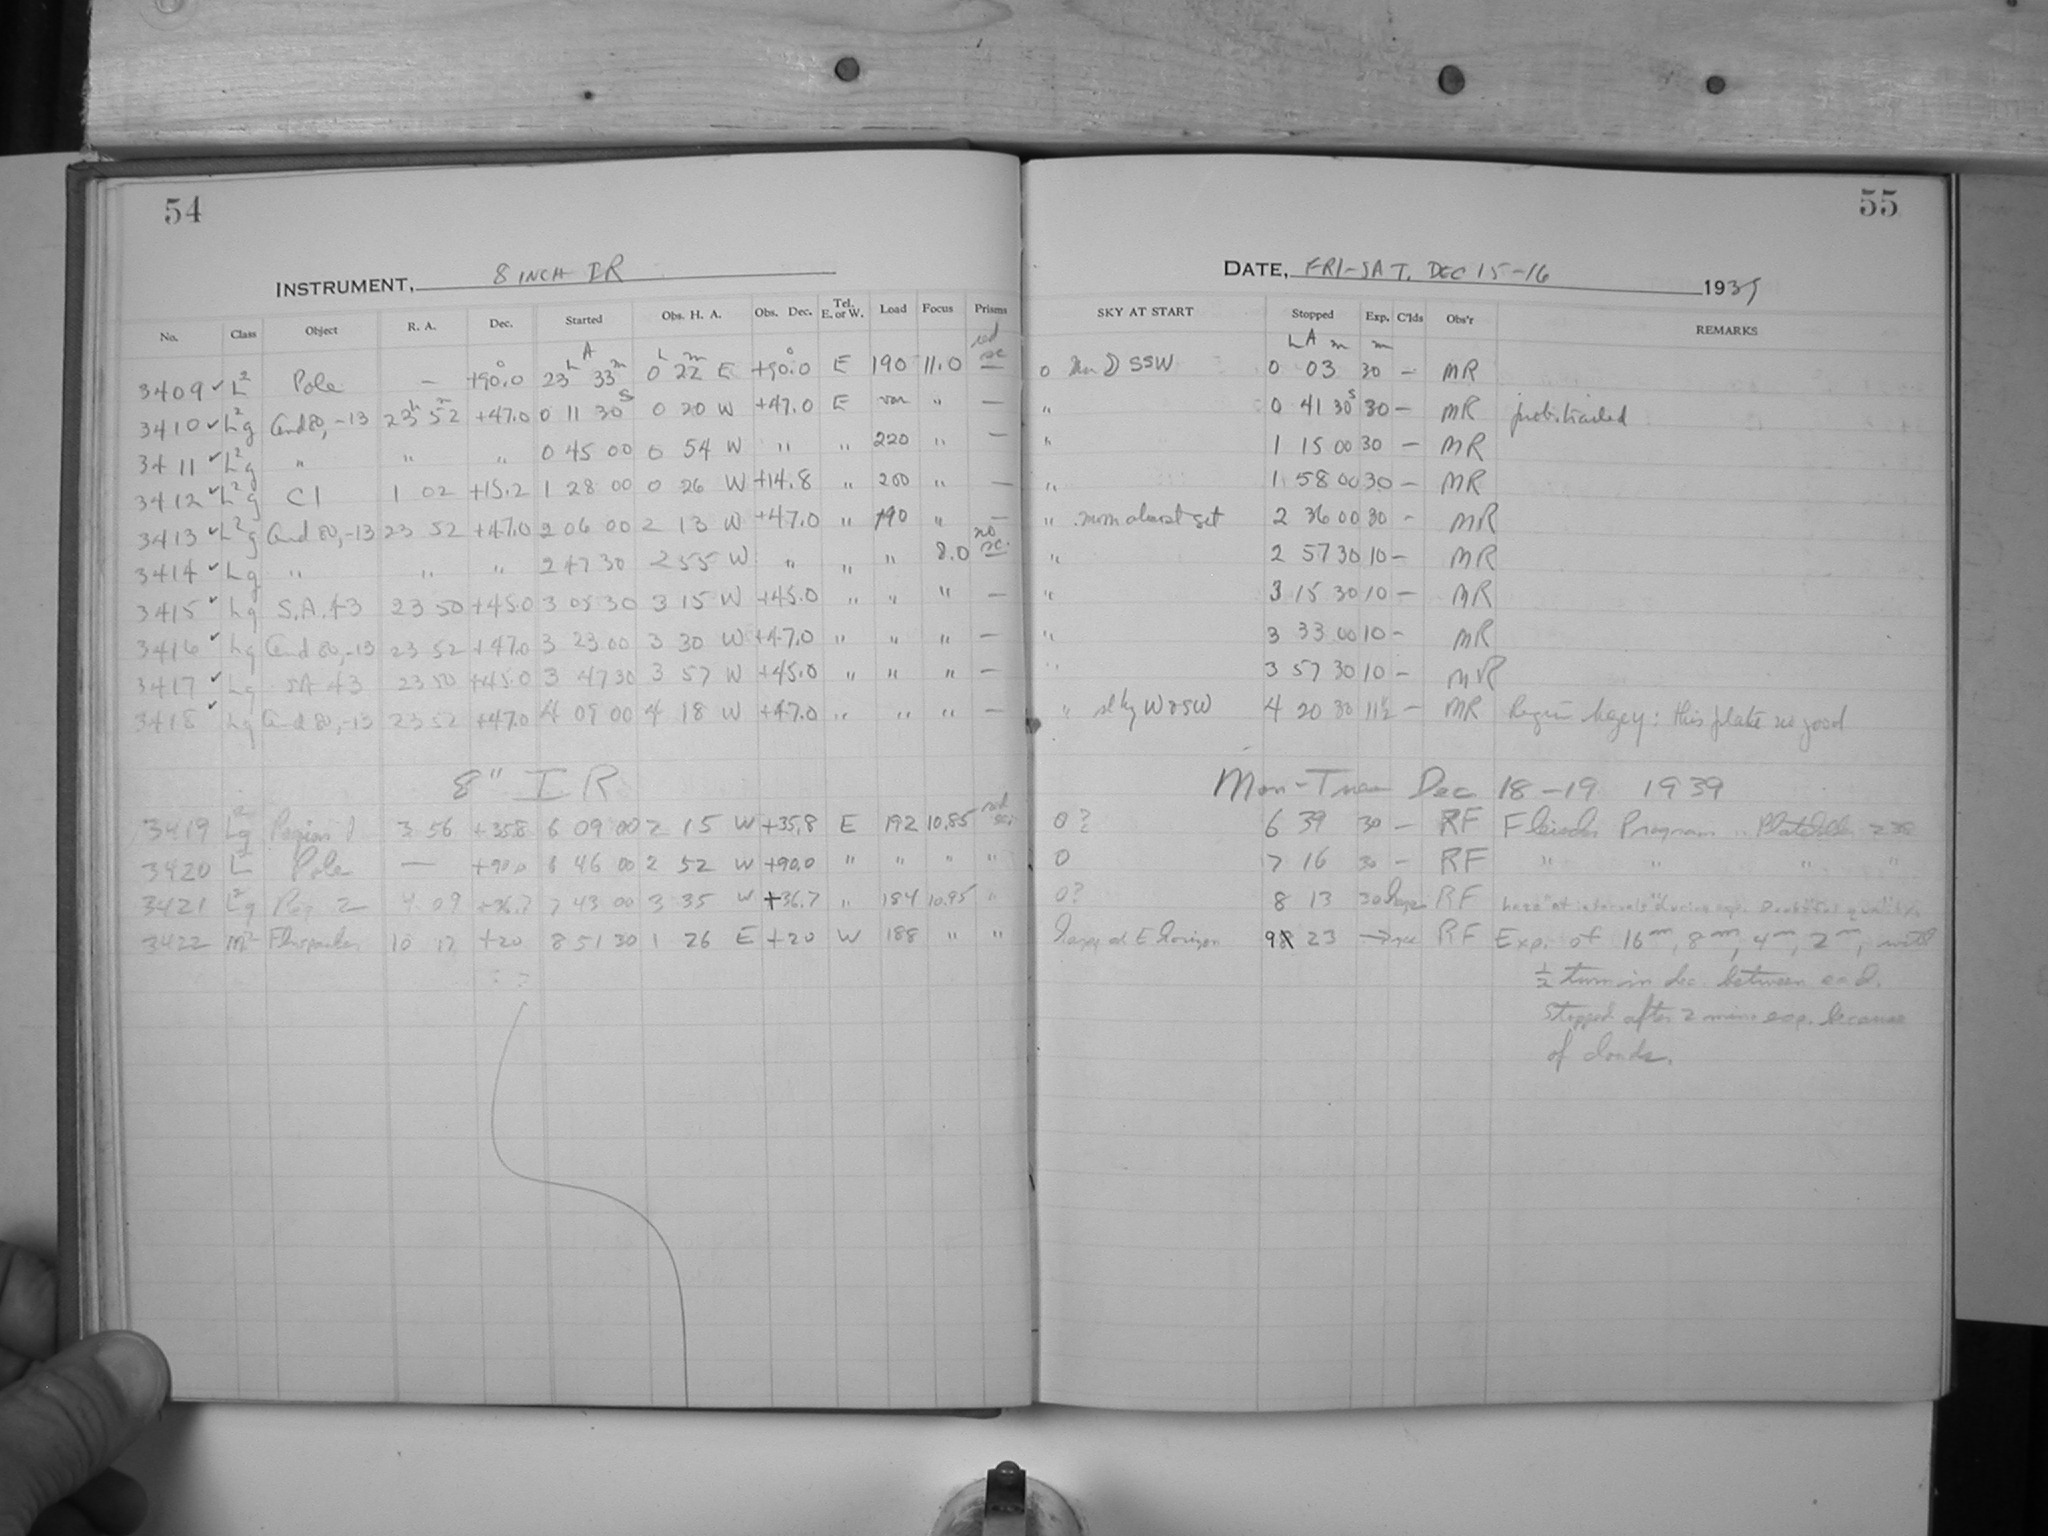 54
INSTRUMENT, 8 INCH IR
No. Class Object R. A. Dec. Started Obs. H. A. Obs. Dec. Tel. E. or W. Load Focus Prisms
3409 ✓ L² Pole — +90.0° 23ʰ 33ᵐ 0ʰ 22ᵐ E +90.0° E 190 11.0 red sc —
3410 ✓ L²g And 80, -13 23ʰ 52ᵐ +47.0 0 11 30ˢ 0 20 W +47.0 E var " —
3411 ✓ L²g " " " 0 45 00 0 54 W " " 220 " —
3412 ✓ L²g C1 1 02 +15.2 1 28 00 0 26 W +14.8 " 200 " —
3413 ✓ L²g And 80, -13 23 52 +47.0 2 06 00 2 13 W +47.0 " 190 " —
3414 ✓ Lg " " " 2 47 30 2 55 W " " " 8.0 no sc.
3415 ✓ Lg S.A. 43 23 50 +45.0 3 05 30 3 15 W +45.0 " " " —
3416 ✓ Lg And 80, -13 23 52 +47.0 3 23 00 3 30 W +47.0 " " " —
3417 ✓ Lg SA 43 23 50 +45.0 3 47 30 3 57 W +45.0 " " " —
3418 ✓ Lg And 80, -13 23 52 +47.0 4 09 00 4 18 W +47.0 " " " —
8" I R
3419 L²g Region 1 3 56 +35.8 6 09 00 2 15 W +35.8 E 192 10.85 red scr
3420 L² Pole — +90.0 6 46 00 2 52 W +90.0 " " " "
3421 L²g Reg 2 4 09 +36.7 7 43 00 3 35 W +36.7 " 184 10.95 "
3422 m² 10 17 +20 8 51 30 1 26 E +20 W 188 " "
55
DATE, FRI-SAT. DEC 15-16 1939
SKY AT START Stopped Exp. C'lds Obs'r REMARKS
0 SSW 0 03 30 — MR
" 0 41 30ˢ 30 — MR prob. trailed
" 1 15 00 30 — MR
" 1 58 00 30 — MR
" moon almost set 2 36 00 30 - MR
" 2 57 30 10 — MR
" 3 15 30 10 — MR
" 3 33 00 10 — MR
" 3 57 30 10 — MR
" W & SW 4 20 30 11½ — MR hazy: this plate no good
Mon-Tues Dec 18-19 1939
0? 6 39 30 — RF Program
0 7 16 30 — RF " " " "
0? 8 13 30 haze RF haze "at intervals" during exp. Doubtful quality.
haze at E horizon 9 23 RF Exp. of 16ᵐ, 8ᵐ, 4ᵐ, 2ᵐ, with
½ turn in dec. between each.
Stopped after 2 mins exp. because
of clouds.